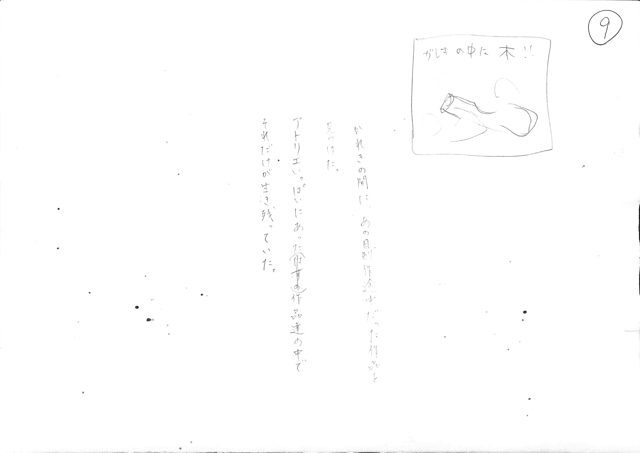 9
がれきの中に 木!!
がれきの間に、あの日制作途中だった作品を
見つけた。
アトリエいっぱいにあった作品達の中で
それだけが生き残っていた。